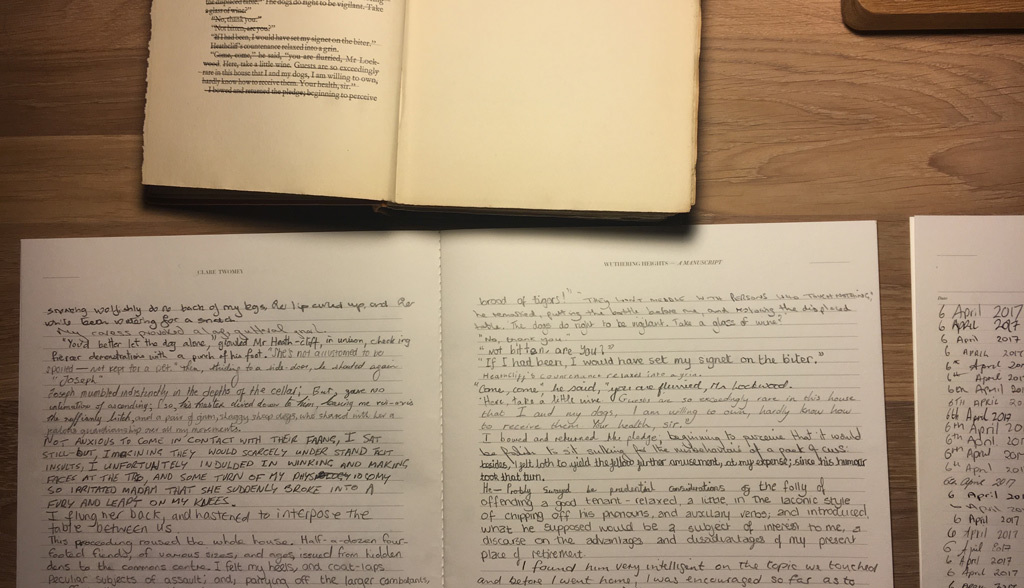 the displaced table. "The dogs do right to be vigilant. Take
a glass of wine?"
"No, thank you."
"Not bitten, are you?"
"If I had been, I would have set my signet on the biter."
Heathcliff's countenance relaxed into a grin.
"Come, come," he said, "you are flurried, Mr Lock-
wood. Here, take a little wine. Guests are so exceedingly
rare in this house that I and my dogs, I am willing to own,
hardly know how to receive them. Your health, sir."
I bowed and returned the pledge; beginning to perceive
WUTHERING HEIGHTS — A MANUSCRIPT
back of my legs her lip curled up, and her
white teeth watering for a snatch
My caress provoked a long, guttural
"You'd better let the dog alone," Mr Heath-cliff, in unison, checking
demonstrations with a punch of his foot. "She's not accustomed to be
spoiled — not kept for a pet." Then, striding to a side-door, he shouted again
"Joseph"
Joseph mumbled indistinctly in the depths of the cellar; But, gave no
intimation of ascending; so, his master dived down to him, leaving me vis-a-vis
the ruffianly bitch, and a pair of grim, shaggy sheep dogs, who shared with her a
guardianship over all my movements.
NOT ANXIOUS TO COME IN CONTACT WITH THEIR FANGS, I SAT
STILL - BUT, IMAGINING THEY WOULD SCARCELY UNDERSTAND TACIT
INSULTS, I UNFORTUNATELY INDULDED IN WINKING AND MAKING
FACES AT THE TRIO, AND SOME TURN OF MY
SO IRRITATED MADAM THAT SHE SUDDENLY BROKE INTO A
FURY AND LEAPT ON MY KNEES.
I flung her back, and hastened to interpose the
table between us
This proceeding roused the whole house. Half-a-dozen four-
footed fiends, of various sizes, and ages, issued from hidden
dens to the common centre. I felt my heels, and coat-laps
Peculiar subjects of assault; and, parrying off the larger combatants,
brood of tigers!" - "THEY WON'T MEDDLE WITH PERSONS WHO TOUCH NOTHING,"
he remarked, putting the bottle before me, and restoring the displaced
table. The dogs do right to be vigilant. Take a glass of wine"
"No, thank you.
"Not bitten are you?"
"If I had been, I would have set my signet on the biter."
Heathcliff's countenance relaxed into a grin.
"Come, come" he said, "you are flurried, Mr Lockwood.
"Here, take a little wine. Guests are so exceedingly rare in this house
that I and my dogs, I am willing to own, hardly know how
to receive them. Your health, sir."
I bowed and returned the pledge, beginning to perceive that it would
be foolish to sit sulking for the misbehaviour of a pack of curs:
besides, I felt loth to yield the fellow further amusement, at my expense; since his humour
took that turn.
He - Probly swayed by prudential considerations of the folly of
offending a good tenant - relaxed, a little, in the laconic style
of chipping off his pronouns, and auxiliary verbs, and introduced
what he supposed would be a subject of interest to me, a
discourse on the advantages and disadvantages of my present
place of retirement.
I found him very intelligent on the topic we touched
and before I went home, I was encouraged so far as to
6 April 2017
6 APRIL 2017
6 April 2017
6 APRIL 2017
6th April 2017
6th April 2017
6th April 201
6TH APRIL 20
6th April 20
6th April 20
6th April 20
6th April 201
6th April 201
6th April 2017
6 April 201
6 April 201
6 April 2017
6 April 2017
6 April 2017
6 April 2017
6 April 20